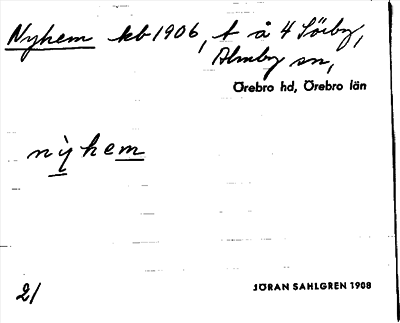 Nyhem kb 1906, t å 4 Sörby,
Almby sn,
Örebro hd, Örebro län
nỳhem
21
JÖRAN SAHLGREN 1908